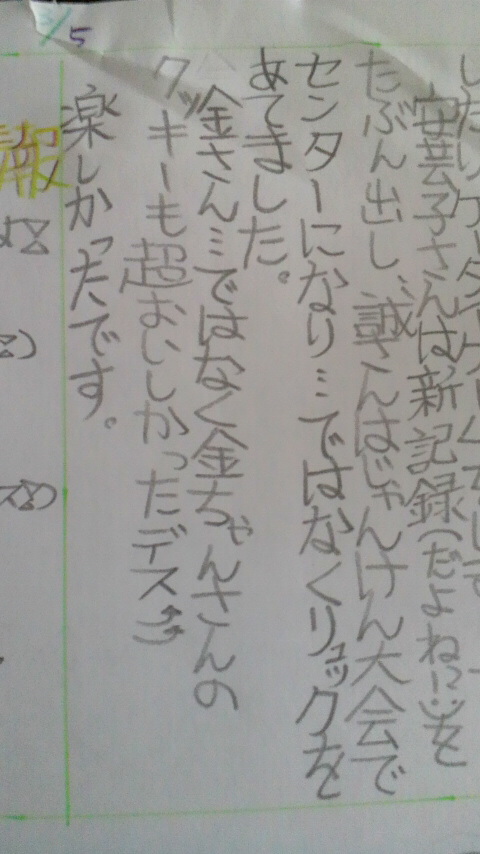 安芸子さんは新記録(だよね…)を
たぶん出し、誠さんはじゃんけん大会で
センターになり…ではなくリュックを
あてました。
金さん…ではなく金ちゃんさんの
クッキーも超おいしかったデス
楽しかったです。
報
3/5